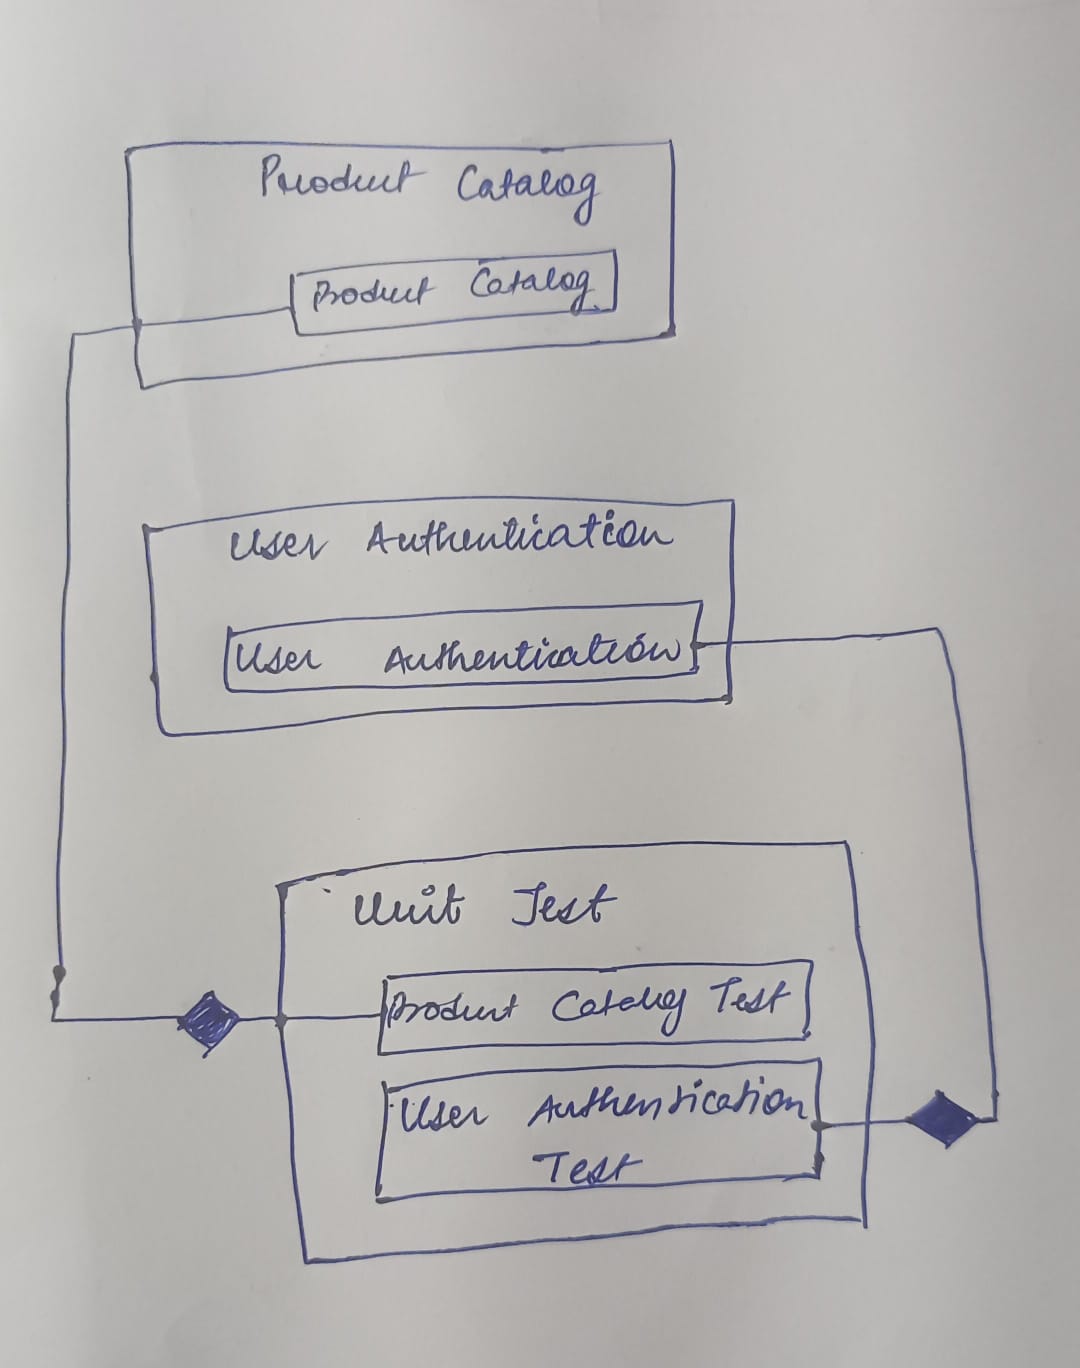 Product Catalog
Product Catalog
User Authentication
User Authentication
Unit Test
Product Catalog Test
User Authentication
Test